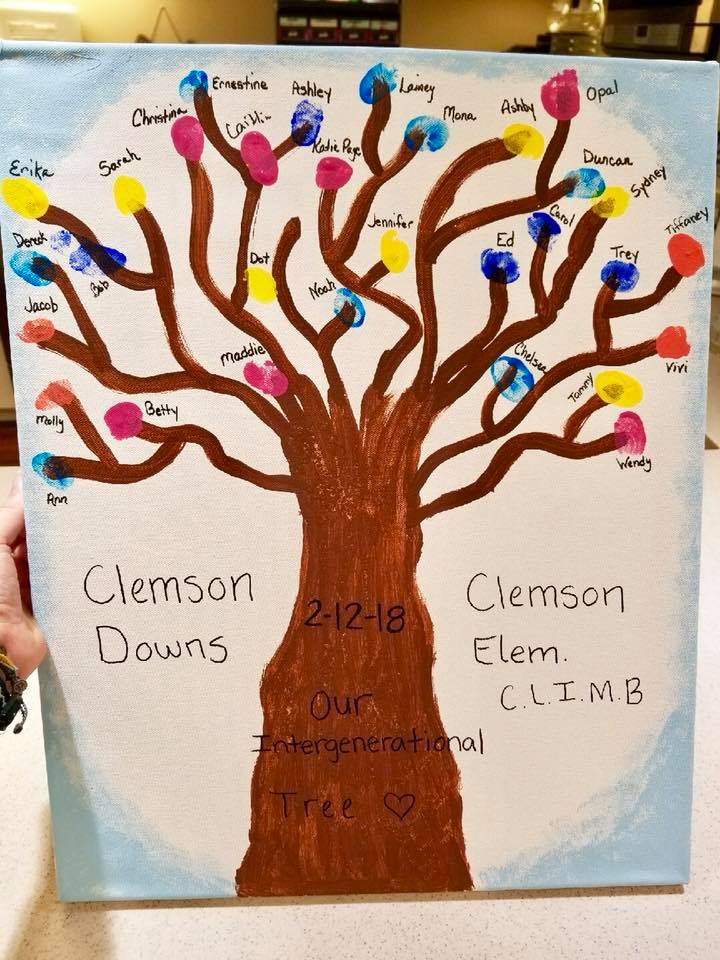 Ernestine
Ashley
Lainey
Opal
Christina
Caitlin
Mona
Ashby
Katie Page
Duncan
Erika
Sarah
Sydney
Carol
Tiffaney
Jennifer
Derek
Bob
Dot
Ed
Trey
Noah
Jacob
Maddie
Chelsea
Vivi
Molly
Betty
Tammy
Ann
Wendy
Clemson
Downs
2-12-18
Our
Intergenerational
Tree ♡
Clemson
Elem.
C.L.I.M.B